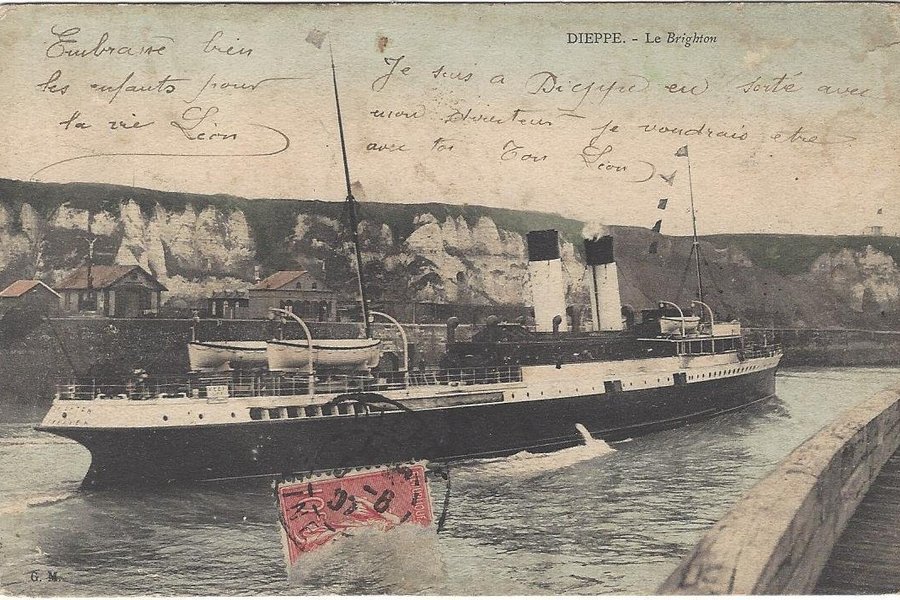 DIEPPE. - Le Brighton
Embrasse bien
les enfants pour
la vie Léon
Je suis a Dieppe en sorté avec
mon directeur je voudrais etre
avec toi Ton Léon
G. M.